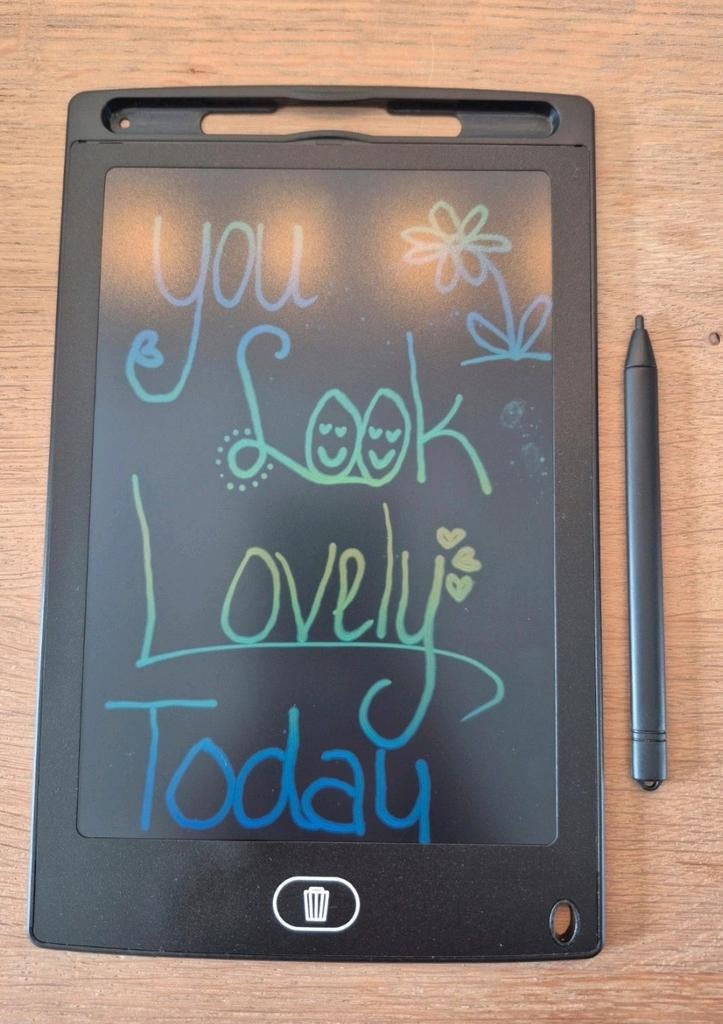 you
Look
Lovely
Today